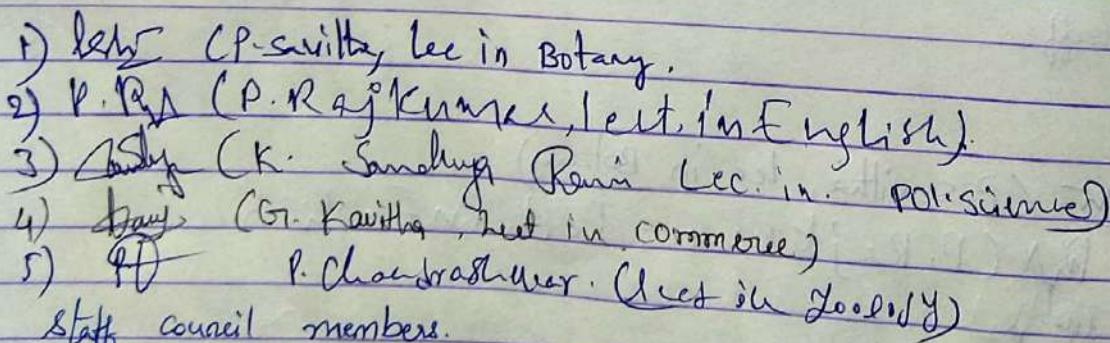 1) (P. Savitha, Lec in Botany.
2) P. Raj (P. Rajkumar, lect. in English).
3) Sandhya (K. Sandhya Rani Lec. in. pol.science)
4) (G. Kavitha, Lect in commerce)
5) P. Chandrashekar. (Lect in Zoology)
Staff council members.